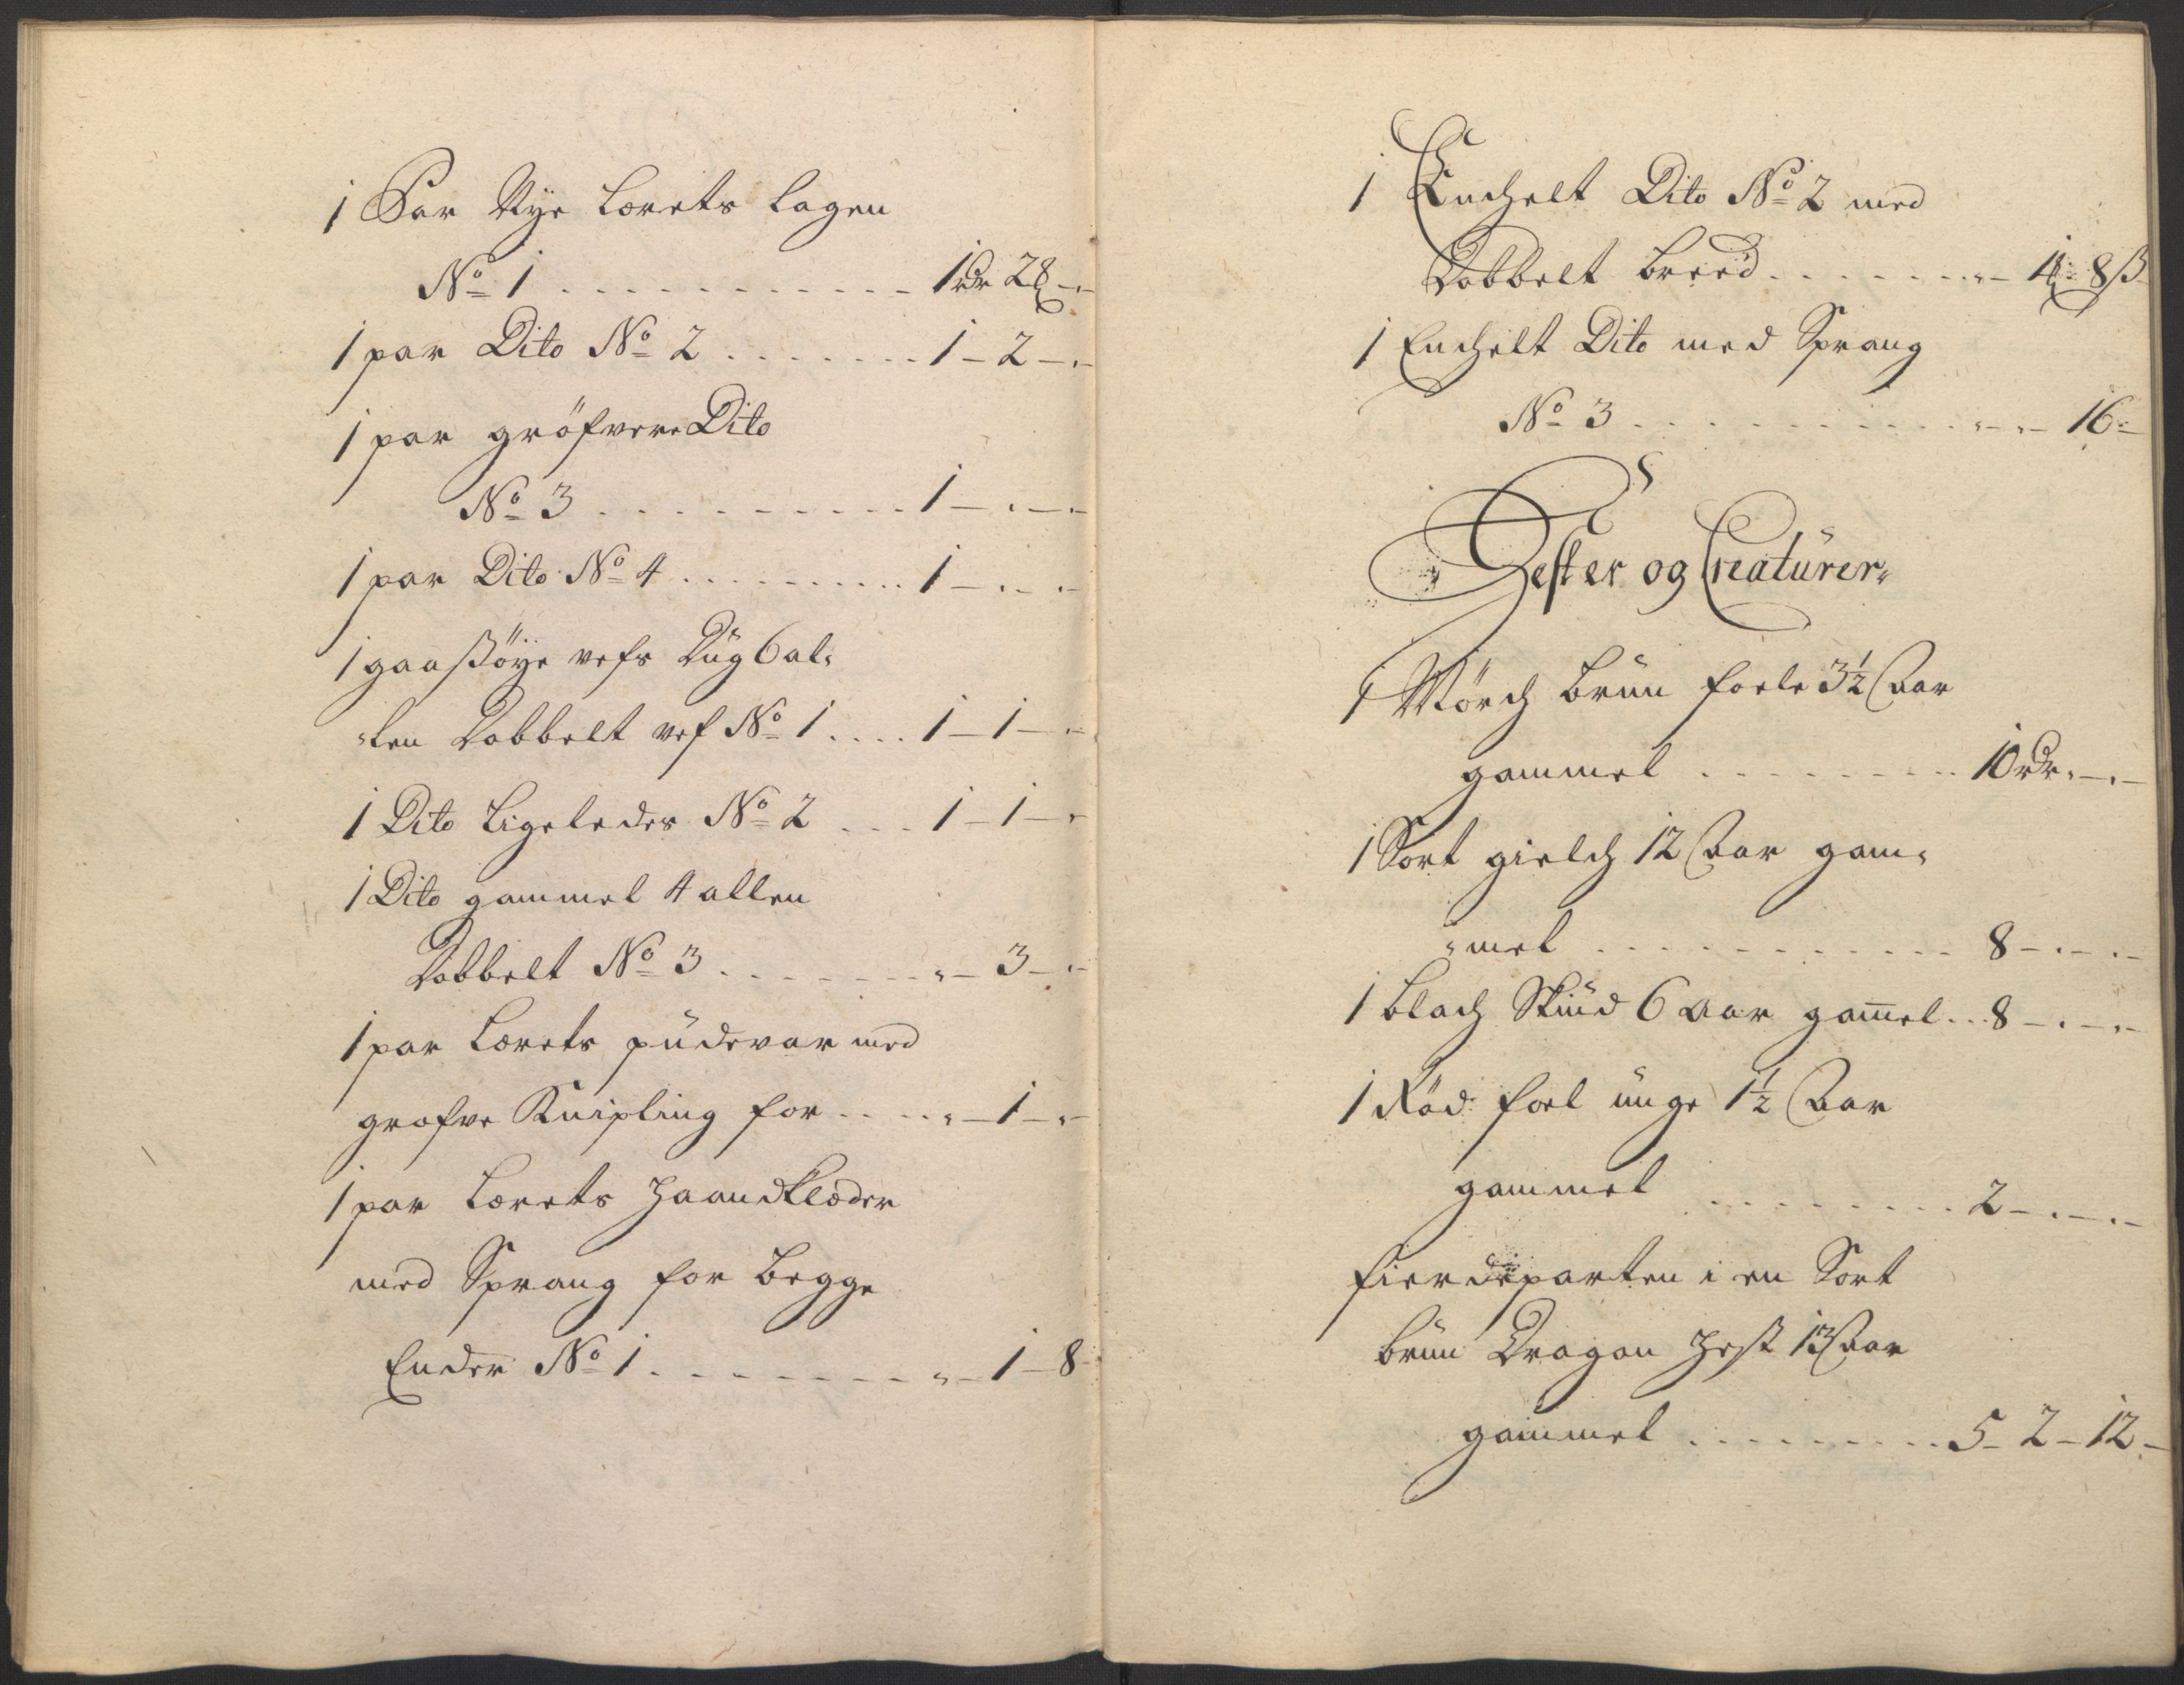 1 Par Nye Lærets Lagen
No 1 . . . . . . . . . . . 1 rdr 2 ß - „ -
1 par Dito No 2 . . . . . . . 1 - 2 - „ -
1 par gröfvere Dito
No 3 . . . . . . . . . . 1 - „ - „ -
1 par Dito No 4 . . . . . . . . . 1 - „ - „ -
1 gaasøye vefs Dug 6 al-
-len Dobbelt vef No 1 . . . . 1 - 1 - „ -
1 Dito Ligeledes No 2 . . . 1 - 1 - „
1 Dito gammel 4 allen
Dobbelt No 3 . . . . . . . „ - 3 - „ -
1 par Lærets pudevar med
grofve Knipling for . . . . „ - 1 - „ -
1 par Lærets Haandklæder
med Sprang for begge
Ender No 1 . . . . . . . . „ - 1 - 8
1 Enchelt Dito No 2 med
Dobbelt breed . . . . . . . „ - 1 8 ß
1 Enchelt Dito med Sprang
No 3 . . . . . . . . . . „ - „ - 16 -
Hester og Creaturer
1 Mörch brun fole 3 1/2 Aar
gammel . . . . . . . . . 10 rdr „ - „ -
1 Sort gielch 12 Aar gam-
-mel . . . . . . . . . . . . 8 - „ - „ -
1 blach Skiud 6 Aar gam̄el . . 8 - „ - „ -
1 Röd foel unge 1 1/2 Aar
gammel . . . . . . . . . 2 - „ - „ -
fierdeparten i en Sort
brun Dragon Hest 13 Aar
gammel . . . . . . . . . 5 - 2 - 12 -